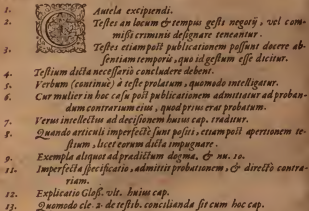 1. CAutela excipiendi.
2. Testes an locum & tempus gesti negotij, vel com-
missi criminis designare teneantur.
3. Testes etiampost publicationem possunt docere ab-
sentiam temporis, quo id gestum esse dicitur.
4. Testium dicta necessario concludere debent.
5. Verbum (continuè) à teste prolatum, quomodo intelligatur.
6. Cur mulier in hoc casu post publicationem admittatur ad proban-
dum contrarium eius, quod prius erat probatum.
7. Verus intellectus ad decisionem huius cap. traditur.
8. Quando articuli imperfectè sunt positi, etiampost apertionem te-
stium, licet eorum dicta impugnare.
9. Exempla aliquot ad prædictum dogma. & nu. 10.
11. Imperfecta specificatio, admittit probationem, & directò contra-
riam.
12. Explicatio Gloss. vlt. huius cap.
13. Quomodo cle. 2. de testib. concilianda sit cum hoc cap.